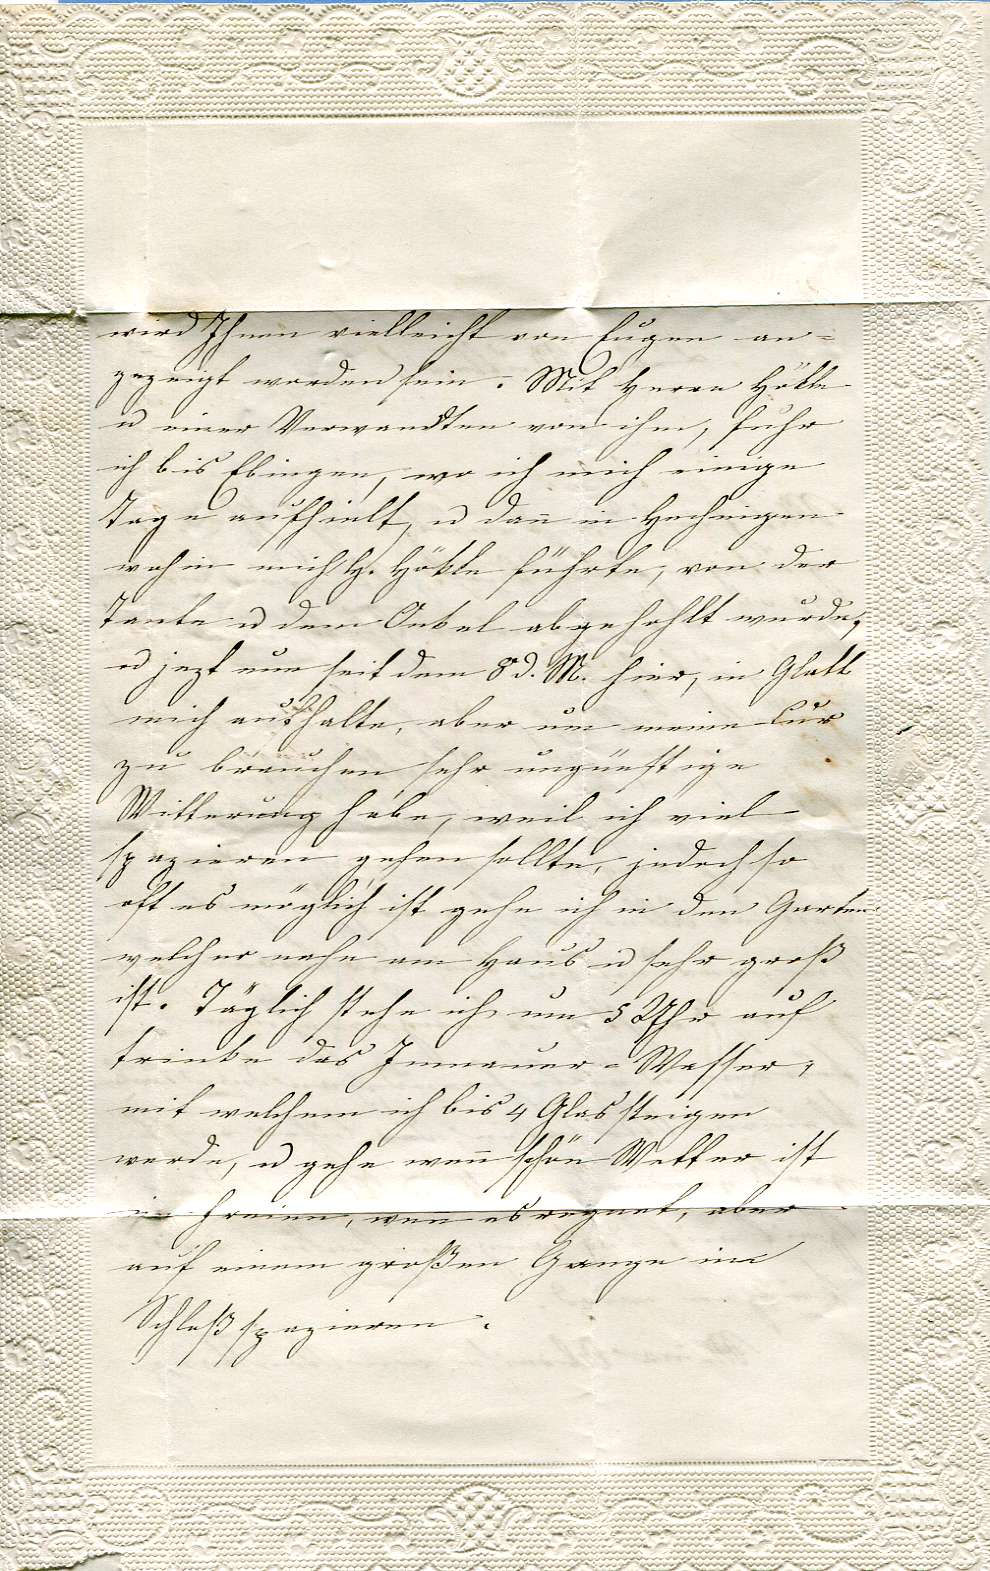 wird Ihnen vielleicht von Eugen an=
gezeigt worden sein. Mit Herrn Hökle
u einer Verwandten von ihm, fuhr
ich bis Ebingen, wo ich mich einige
Tage aufhielt, u dañ in Hechingen
wohin mich H. Hökle führte, von der
Tante u dem Onkel abgehohlt wurde,
u jezt nun seit dem 8 d. M. hier, in Glatt
mich aufhalte, aber um meine Cur
zu brauchen sehr ungünstige
Witterung habe, weil ich viel
spazieren gehen sollte, jedoch so
oft es möglich ist gehe ich in den Garten
welcher nahe am Haus u sehr groß
ist. Täglich stehe ich um 5 Uhr auf
trinke das Imnauer=Wasser,
mit welchem ich bis 4 Glas steigen
werde, u gehe weñ schön Wetter ist
im Freien, weñ es regnet, aber
auf einem großen Gange im
Schloß spazieren.